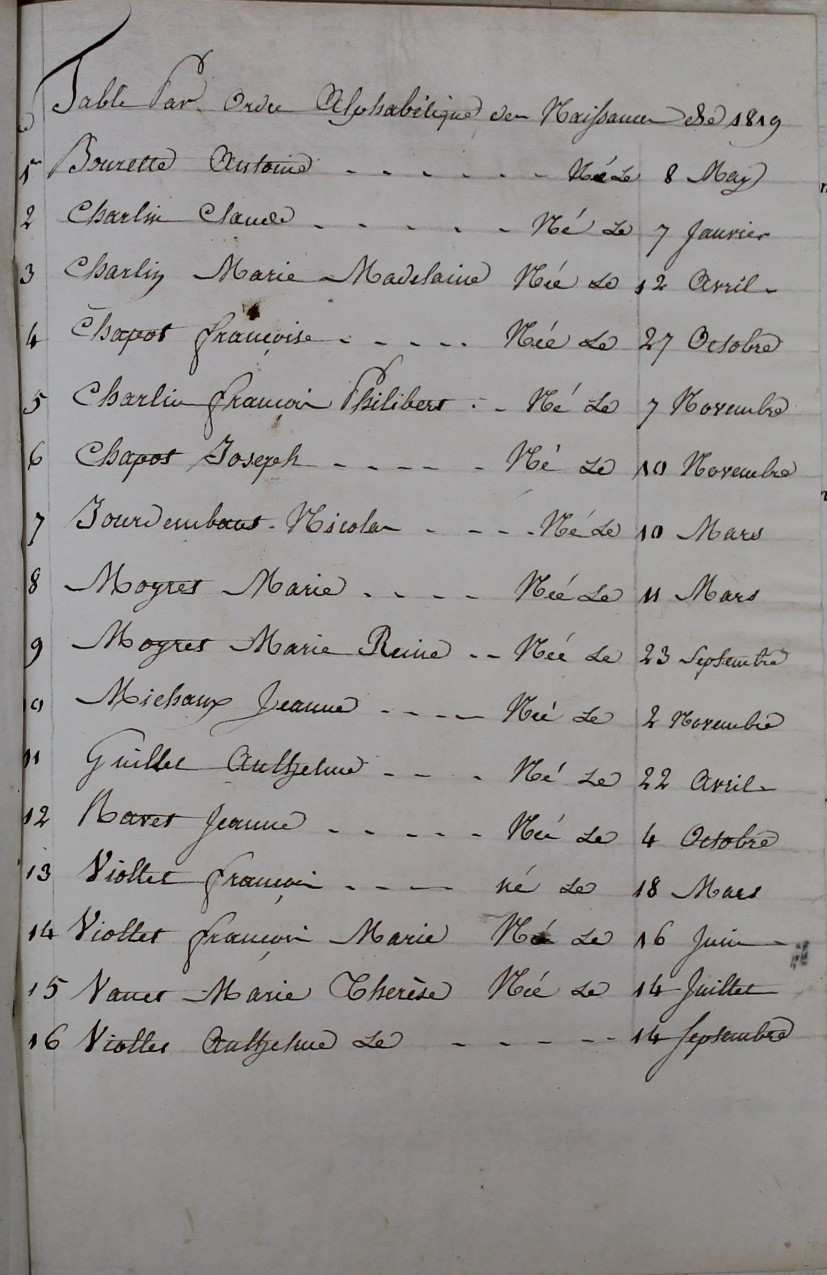 Table Par Ordre Alphabétique des Naissances de 1819
1 Bourette Antoine - - - - - - Né Le 8 May
2 Charlin Claude - - - - - Né Le 7 Janvier
3 Charlin Marie Madelaine Née Le 12 Avril
4 Chapot françoise - - - - - Née Le 27 Octobre
5 Charlin françois Philibert - - Né Le 7 Novembre
6 Chapot Joseph - - - - - Né Le 10 Novembre
7 Jourdembaut Nicolas - - - - Né Le 10 Mars
8 Moyret Marie - - - - Née Le 11 Mars
9 Moyret Marie Reine - - Née Le 23 Septembre
10 Michaux Jeanne - - - - Née Le 2 Novembre
11 Guillet Anthelme - - - Né Le 22 Avril
12 Ravet Jeanne - - - - - Née Le 4 Octobre
13 Viollet françois - - - - né Le 18 Mars
14 Viollet françois Marie Né Le 16 Juin
15 Vanet Marie Therèse Née Le 14 Juillet
16 Viollet Anthelme Le - - - - - 14 Septembre